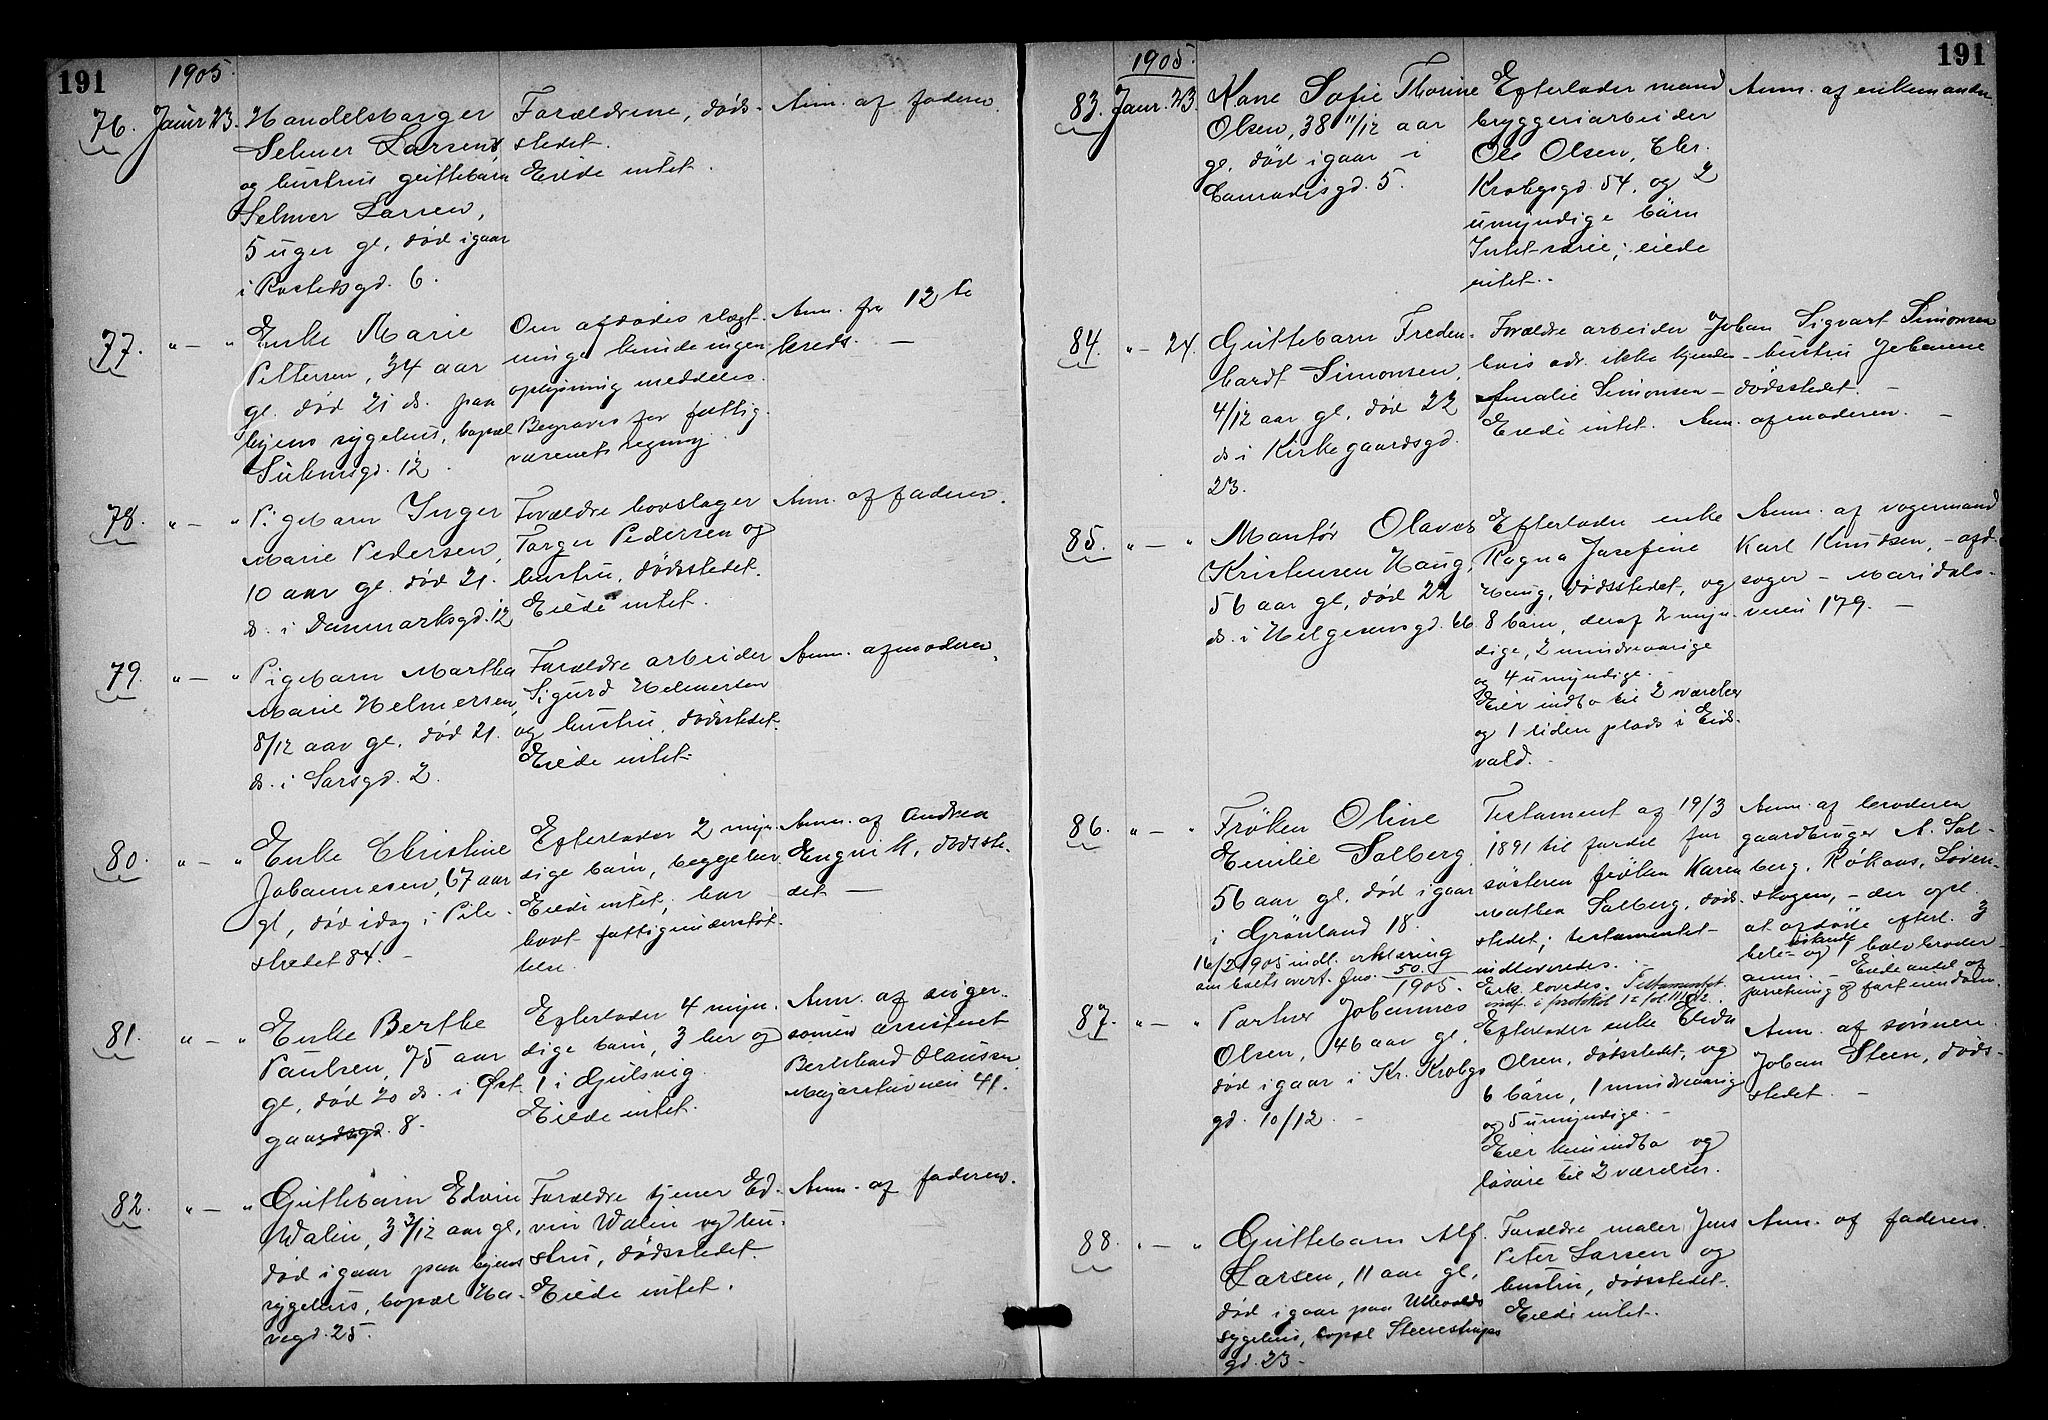 191
1905.
76. Janur 23. Handelsborger
Selmer Larsens
og hustrus guttebarn
Selmer Larsen,
5 uger gl, død igaar
i Rostedsgd. 6.
Forældrene, døds-
stedet.
Eiede intet.
Anm. af faderen.
77. " — " Enke Marie
Pettersen, 34 aar
gl. død 21 ds. paa
byens sygehus, bopæl
Suhmsgd. 12.
Om afdødes slægt-
ninge kunde ingen
oplysning meddeles.
Begraves for fattig-
væsenets regning.
Anm. fra 12te
kreds. —
78. " — " Pigebarn Inger
Marie Pedersen,
10 aar gl. død 21.
ds. i Danmarksgd. 12
Forældre hovslager
Torger Pedersen og
hustru, dødsstedet.
Eiede intet.
Anm. af faderen.
79. " — " Pigebarn Martha
Marie Helmersen,
8/12 aar gl. død 21.
ds. i Sarsgd. 2.
Forældre arbeider
Sigurd Helmersen
og hustru, dødsstedet.
Eiede intet.
Anm. af moderen.
80. " — " Enke Christine
Johannesen, 67 aar
gl, død idag i Pile-
stredet 84. —
Efterlader 2 myn-
dige børn, begge her.
Eiede intet, har
havt fattigunderstøt-
telse.
Anm. af Andrea
Engvik, dødsste-
det —
81. " — " Enke Berthe
Paulsen, 75 aar
gl, død 20 ds. i Øst-
gaardsgd. 8.
Efterlader 4 myn-
dige børn, 3 her og
1 i Gjulsvig.
Eiede intet.
Anm. af sviger-
sønnen assistent
Berthard Olaussen,
Majorstuveien 41.
82. " — " Guttebarn Edvin
Walin, 3 3/12 aar gl,
død igaar paa byens
sygehus, bopæl Ha-
vegd. 25.
Forældre tjener Ed-
vin Walin og hu-
stru, dødsstedet.
Eiede intet.
Anm. af faderen.
191
1905.
83. Janur. 23. Kone Sofie Thorine
Olsen, 38 11/12 aar
gl, død igaar i
5.
Efterlader mand
bryggeriarbeider
Ole Olsen, Chr.
Krohgsgd. 54, og 2
umyndige børn
Intet særeie; eiede
intet. -
Anm. af enkemanden.
84. " — 24. Guttebarn Freden-
hardt Simonsen,
4/12 aar gl, død 22
ds i Kirkegaardsgd.
23.
Forældre arbeider Johan Sigvart Simonsen
hvis adr. ikke kjendes — hustru Johanne
Amalie Simonsen — dødsstedet. —
Eiede intet. Anm. af moderen. —
85. " — " Montør Olaves
Kristensen Haug,
56 aar gl, død 22
ds. i Helgesensgd. 66
Efterlader enke
Ragna Josefine
Haug, dødsstedet, og
8 børn, deraf 2 myn-
dige, 2 mindreaarige
og 4 umyndige. —
Eier indbo til 2 værelser
og 1 liden plads i Eids-
vold. —
Anm. af vognmand
Karl Knudsen, — afd.
svoger — Maridals-
veien 179. —
86. " — " Frøken Oline
Emilie Solberg,
56 aar gl, død igaar
i Grønland 18.
16/2 1905 indl. erklæring
om boets overt. Jno. 50/1905.
Testament af 19/3
1891 til fordel for
søsteren frøken Karen
Mathea Solberg, døds-
stedet; testamentet
indleveredes. —
Erk. lovedes. Testamentet
indf. i protokol 12 fol.
Anm. af broderen
gaardbruger A. Sol-
berg, Løken-
skogen, — der opl.
at afdøde efterl. 3
hel- og 1 halv broder-
søskende
— Eiede andel af
forretning og fast eiendom.
87. " — " Portner Johannes
Olsen, 46 aar gl,
død igaar i Kr. Krohgs
gd. 10/12. —
Efterlader enke
Olsen, dødsstedet, og
6 børn, 1 mindreaarig
og 5 umyndige. —
Eier kun indbo og
løsøre til 2 værelser.
Anm. af sønnen
Johan Steen, døds-
stedet. —
88. " — " Guttebarn Alf
Larsen, 11 aar gl,
død igaar paa Ullevaals
sygehus, bopæl Steenstrups
gd. 23 -
Forældre maler Jens
Peter Larsen og
hustru, dødsstedet.
Eiede intet.
Anm. af faderen.